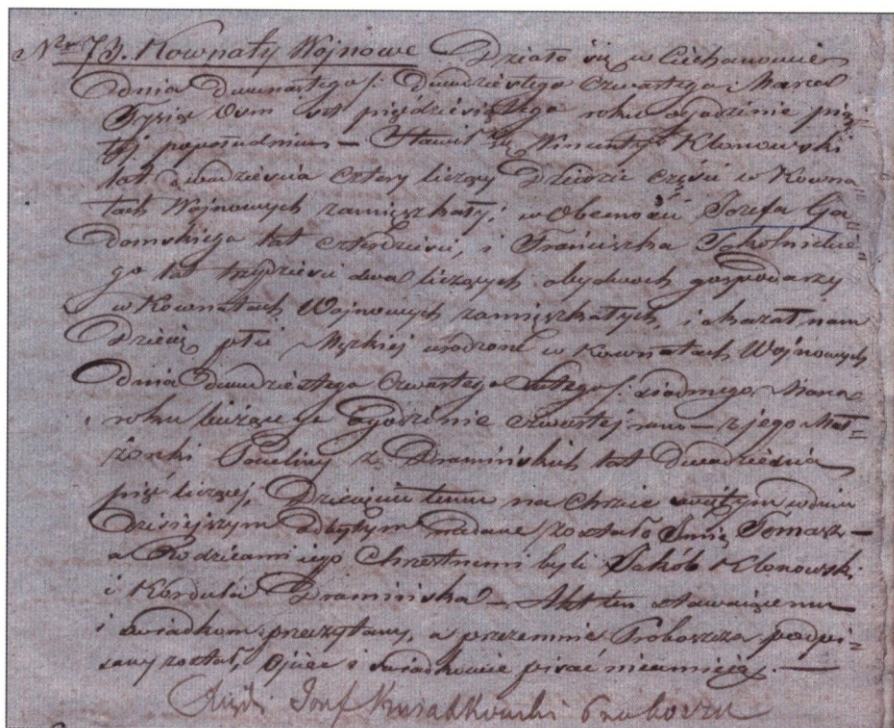 Nr 73. Kownaty Wojnowe Działo się w Ciechanowie
dnia dwunastego /: dwudziestego czwartego : Marca
Tysiąc Osm set pięćdziesiątego roku o godzinie pią=
tej popołudniu — Stawił się Wincenty Klonowski
lat dwadzieścia cztery liczący Dziedzic części w Kowna
tach Wojnowych zamięszkały, w Obecności Jozefa Ga
domskiego lat czterdzieści, i Franciszka Sokolnickie
go lat trzydzieści dwa liczących, obydwoch gospodarzy
w Kownatach Wojnowych zamięszkałych, i okazał nam
Dziecię płci Męzkiej urodzone w Kownatach Wojnowych
dnia dwudziestego czwartego Lutego /: siodmego Marca
roku bieżącego o godzinie czwartej rano — z jego Mał=
żonki Pauliny z Dramińskich lat Dwadzieścia
pięć liczącej, Dziecięciu temu na chrzcie świętym w dniu
dzisiejszym odbytym nadane zostało Imię Tomasz —
a Rodzicami iego Chrzestnemi byli Jakób Klonowski
i Kordula Dramińska — Akt ten stawaiącemu
i swiadkom przeczytany, a przezemnie Proboszcza podpi=
sany został, Ojciec i Swiadkowie pisać nieumieją. —
Xiądz Jozef Proboszcz